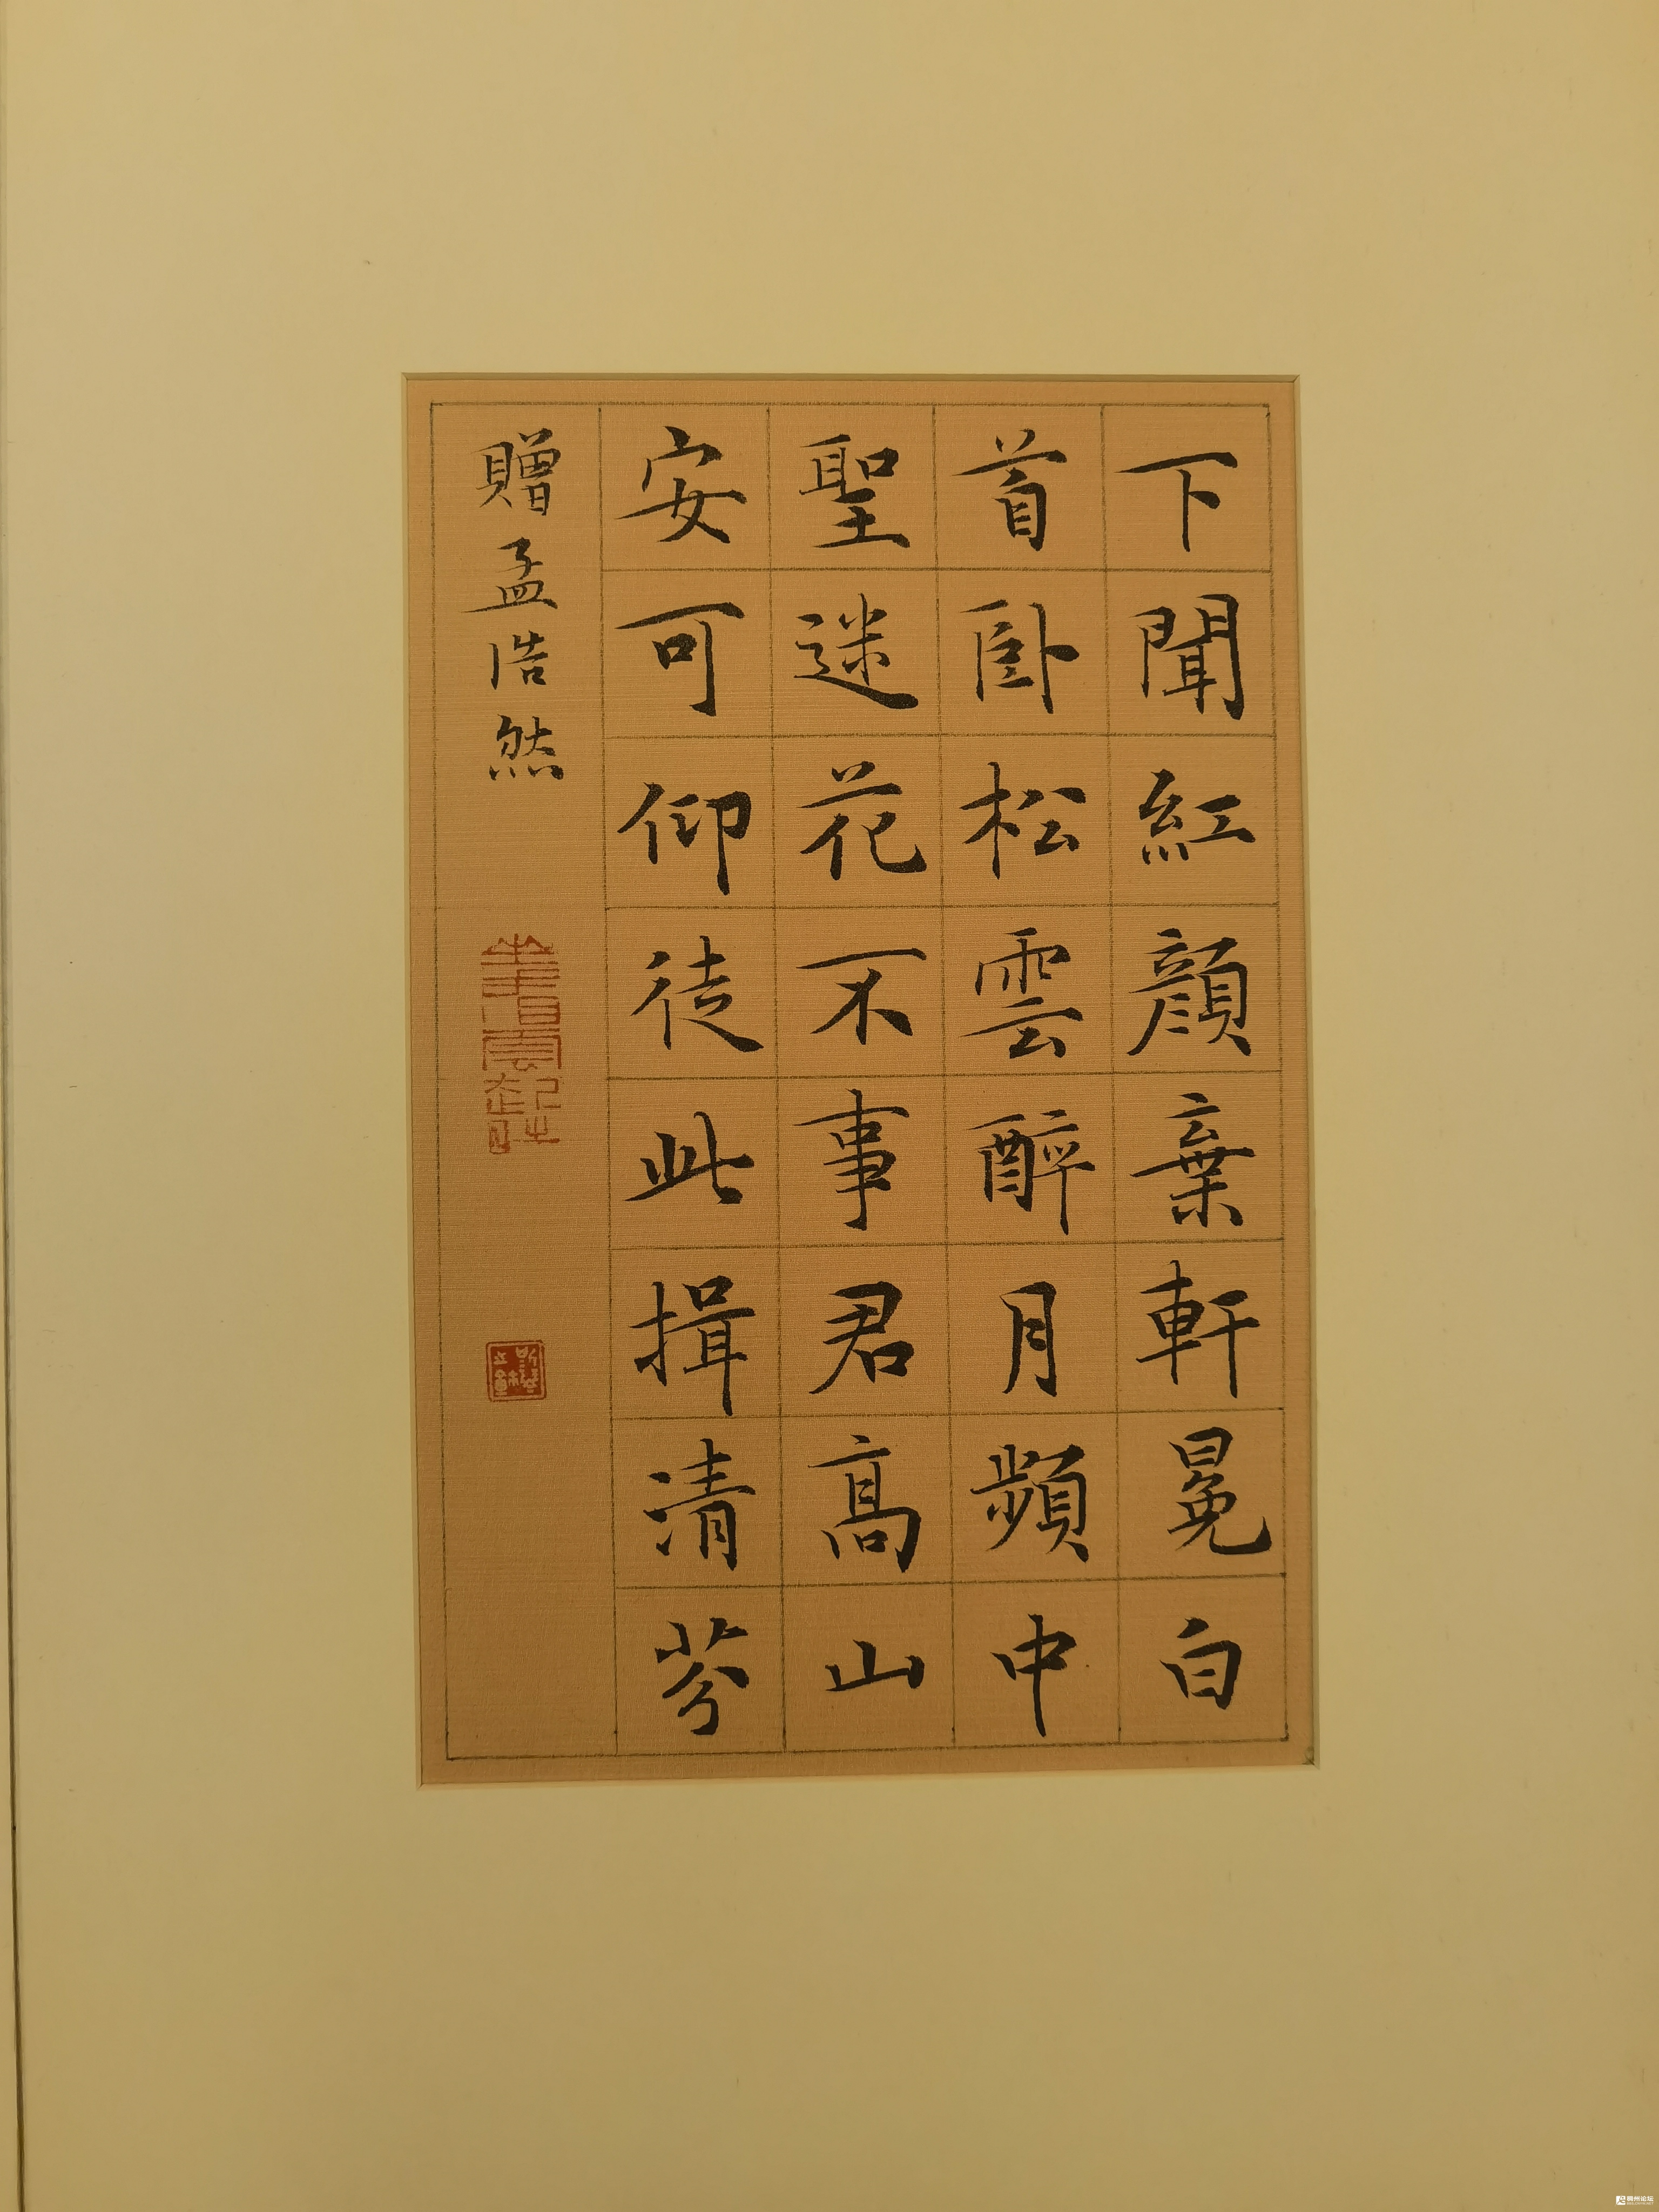 下聞紅顔棄軒冕白
首卧松雲醉月頻中
聖迷花不事君高山
安可仰徒此揖清芬
贈孟浩然
坐看雲起時